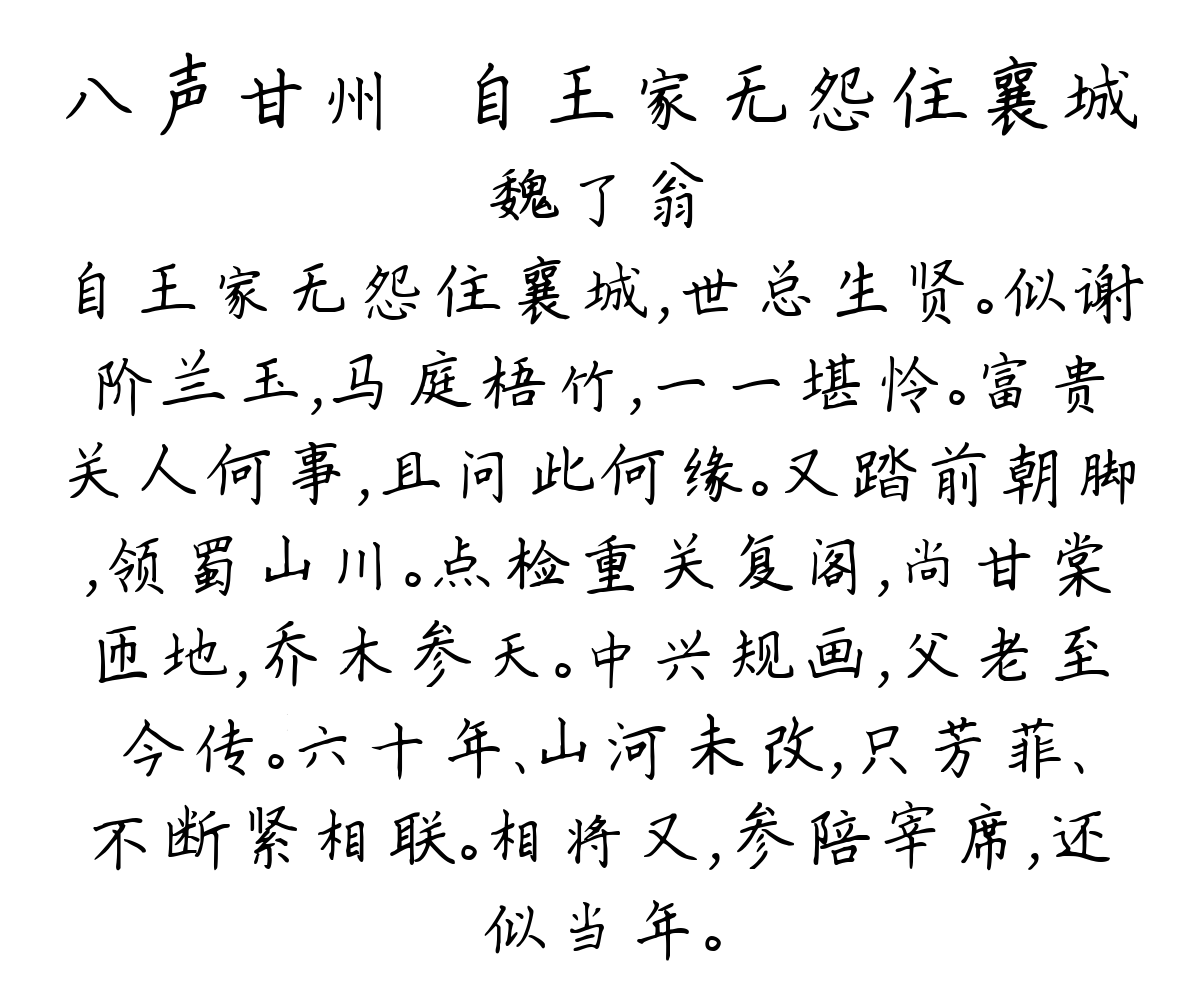 八声甘州 自王家无怨住襄城
魏了翁
自王家无怨住襄城,世总生贤。似谢
阶兰玉,马庭梧竹,一一堪怜。富贵
关人何事,且问此何缘。又踏前朝脚
,领蜀山川。点检重关复阁,尚甘棠
匝地,乔木参天。中兴规画,父老至
今传。六十年、山河未改,只芳菲、
不断紧相联。相将又,参陪宰席,还
似当年。